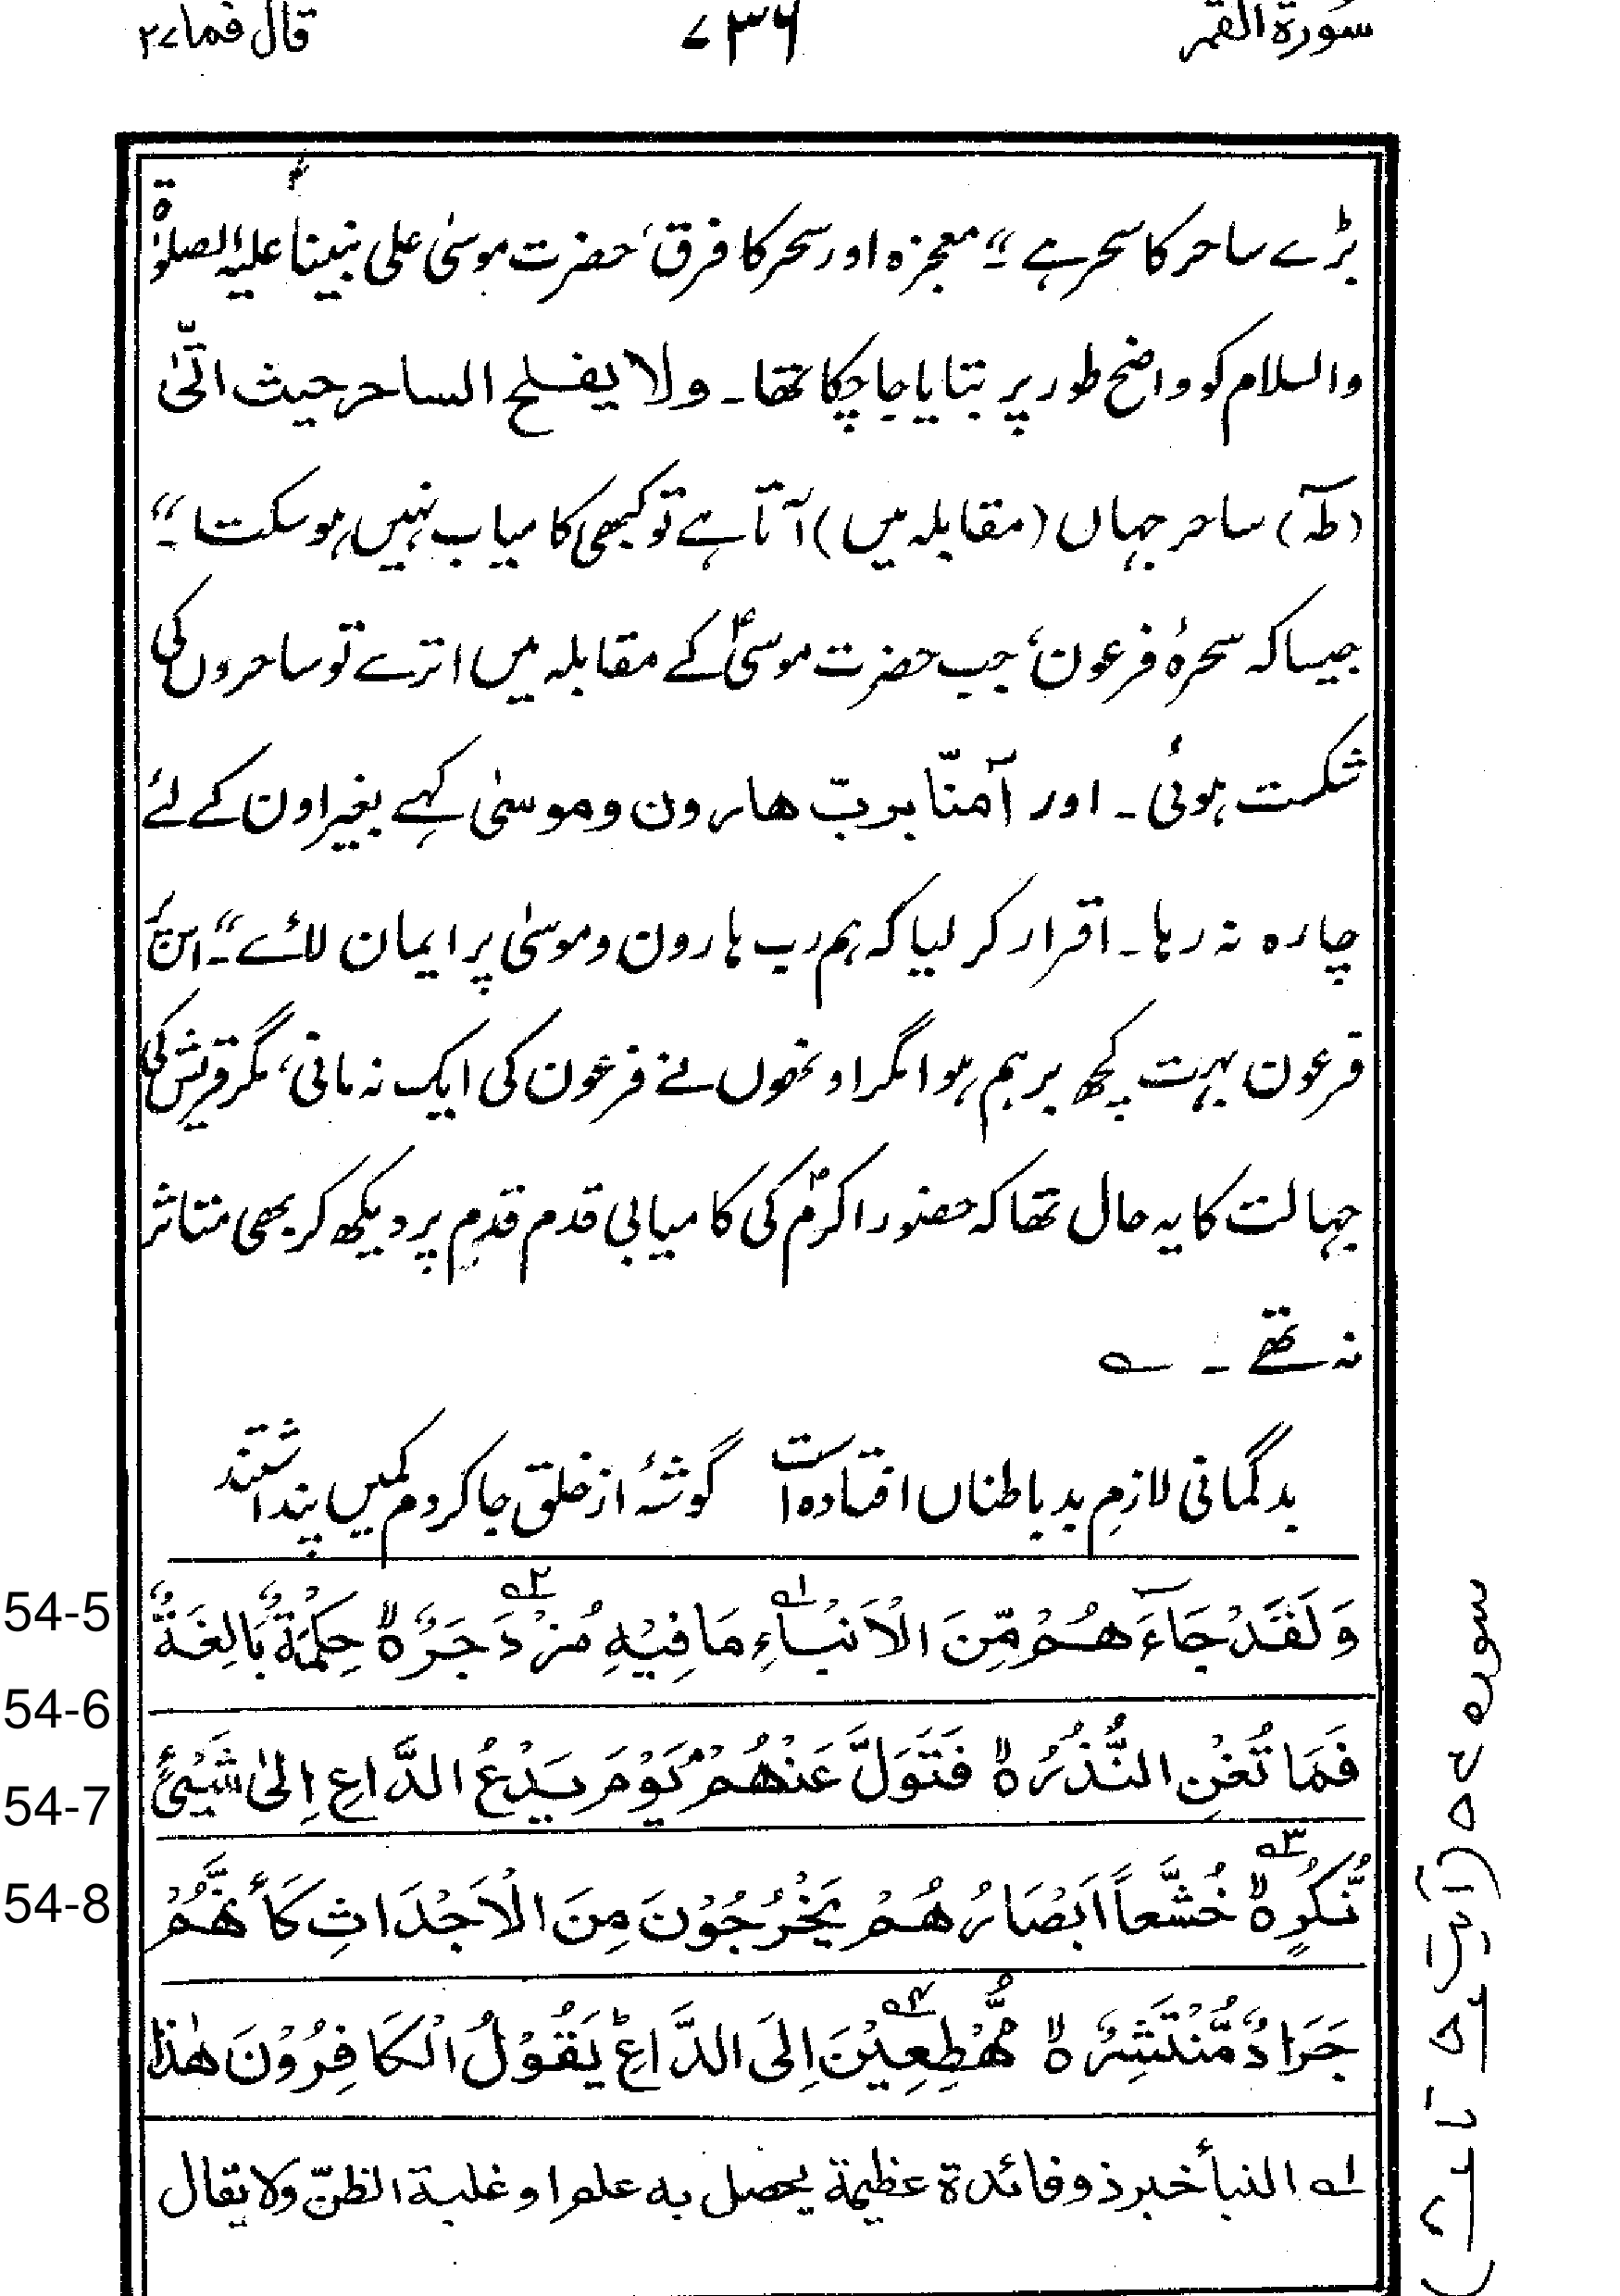 سورة القمر ۷۳۶ قال فما ۲۷
بڑے ساحر کا سحر ہے ‟۔ معجزہ اور سحر کا فرق، حضرت موسیٰ علی نبینا علیہ الصلوٰۃ
والسلام کو واضح طور پر بتایا جا چکا تھا۔ ولا یفلح الساحر حیث اتیٰ
(طہٓ) ساحر جہاں (مقابلہ میں) آتا ہے تو کبھی کامیاب نہیں ہو سکتا ‟۔
جیسا کہ سحرۂ فرعون، جب حضرت موسیٰؑ کے مقابلہ میں اترے تو ساحروں کی
شکست ہوئی۔ اور آمنّا بربّ ھارون وموسیٰ کہے بغیر اون کے لئے
چارہ نہ رہا۔ اقرار کر لیا کہ ہم رب ہارون و موسیٰ پر ایمان لائے ‟۔ اس پر
فرعون بہت کچھ برہم ہوا مگر اونھوں نے فرعون کی ایک نہ مانی، مگر قریش کی
جہالت کا یہ حال تھا کہ حضور اکرمؐ کی کامیابی قدم قدم پر دیکھ کر بھی متاثر
نہ تھے۔ ؎
بدگمانی لازمِ بد باطناں افتادہ است گوشۂ از خلق جا کردم کمیں پنداشتند
54-5 وَلَقَدْ جَآءَهُمْ مِّنَ الْاَنْبَآءِ ؎۱ مَا فِيْهِ مُزْدَجَرٌ ؎۲ ۝ حِكْمَةٌۢ بَالِغَةٌ
54-6
فَمَا تُغْنِ النُّذُرُ ۝ فَتَوَلَّ عَنْهُمْ ۘ يَوْمَ يَدْعُ الدَّاعِ اِلیٰ شَيْئٍ
54-7
54-8 نُّكُرٍ ؎۳ ۝ خُشَّعاً اَبْصَارُهُمْ يَخْرُجُوْنَ مِنَ الْاَجْدَاثِ كَأَنَّهُمْ
جَرَادٌ مُّنْتَشِرٌ ۝ مُّهْطِعِيْنَ ؎۴ اِلَى الدَّاعِ ؕ يَقُوْلُ الْكَافِرُوْنَ هٰذَا
؎۱ النبأ خبر ذو فائدة عظيمة يحصل به علم او غلبة الظنّ ولا يقال
سورہ ۵۴ (آیت ۵ تا ۸)